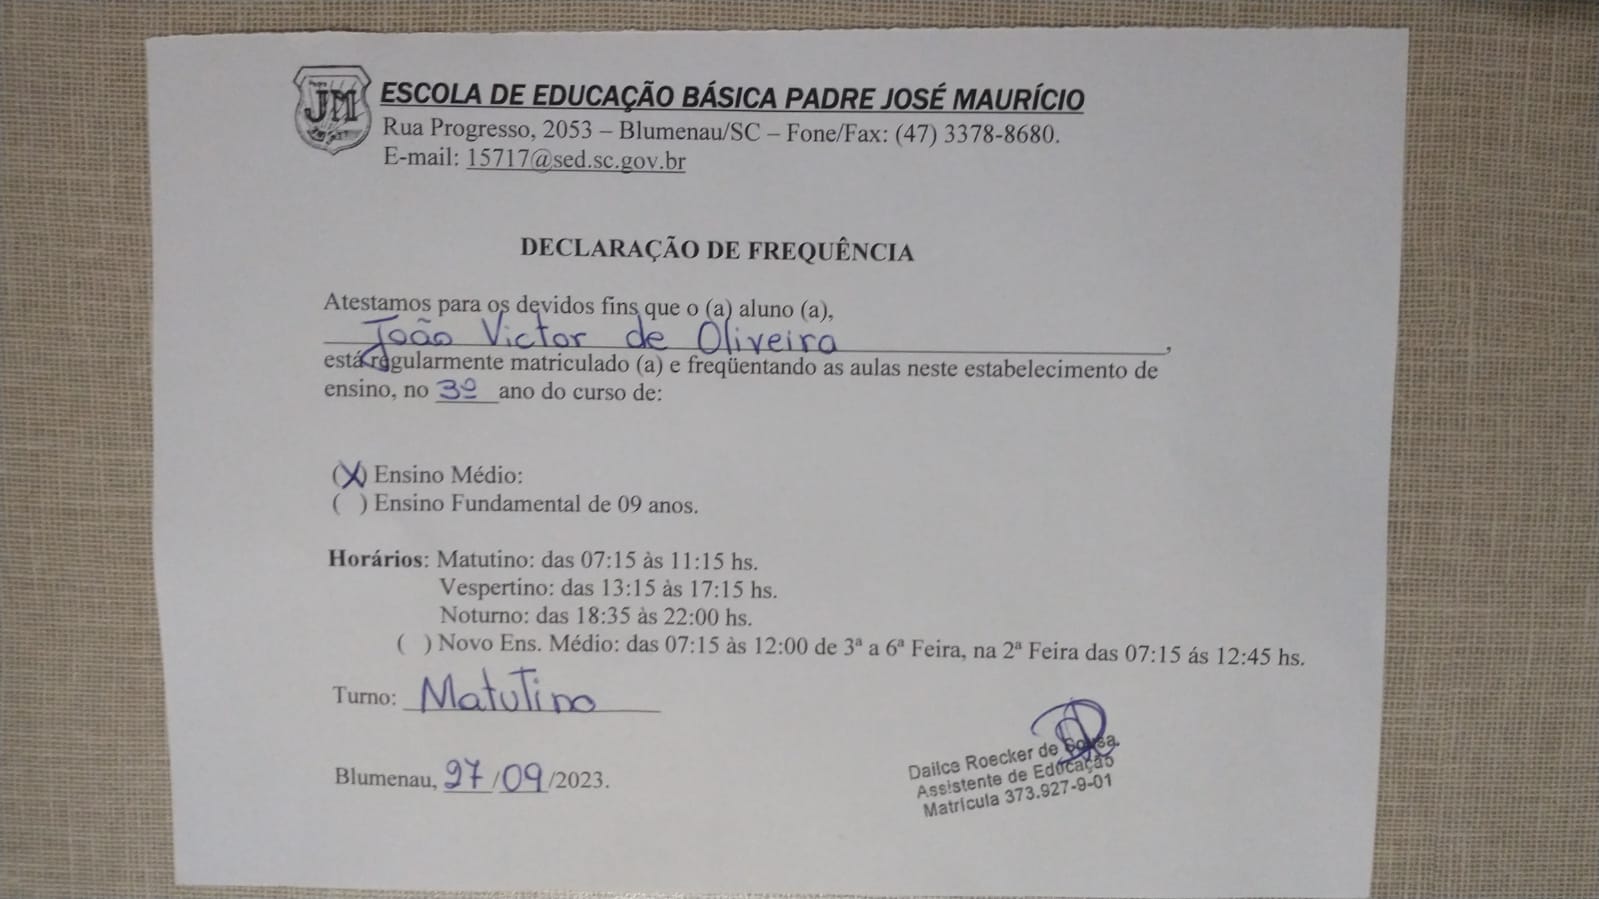 JM
ESCOLA DE EDUCAÇÃO BÁSICA PADRE JOSÉ MAURÍCIO
Rua Progresso, 2053 – Blumenau/SC – Fone/Fax: (47) 3378-8680.
E-mail: 15717@sed.sc.gov.br
DECLARAÇÃO DE FREQUÊNCIA
Atestamos para os devidos fins que o (a) aluno (a),
João Victor de Oliveira,
está regularmente matriculado (a) e freqüentando as aulas neste estabelecimento de
ensino, no 3º ano do curso de:
(X) Ensino Médio:
( ) Ensino Fundamental de 09 anos.
Horários: Matutino: das 07:15 às 11:15 hs.
Vespertino: das 13:15 às 17:15 hs.
Noturno: das 18:35 às 22:00 hs.
( ) Novo Ens. Médio: das 07:15 às 12:00 de 3ª a 6ª Feira, na 2ª Feira das 07:15 ás 12:45 hs.
Turno: Matutino
Blumenau, 27/09/2023.
Dailce Roecker de Sousa
Assistente de Educação
Matrícula 373.927-9-01